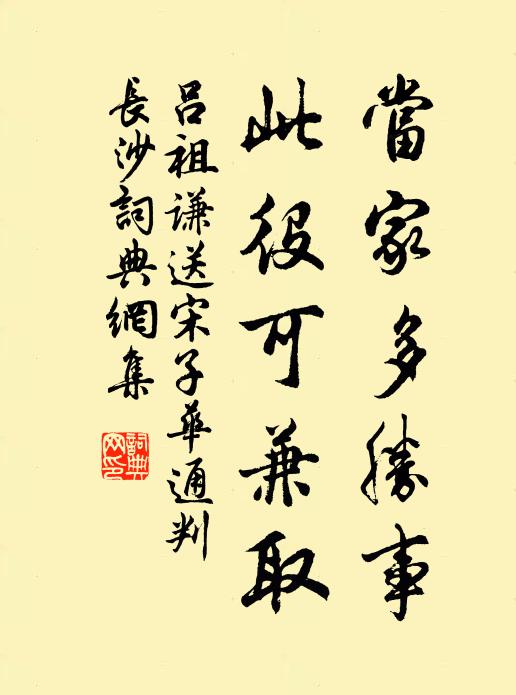 當家多勝事
此役可兼取
呂祖谦送宋子華通判
長沙詞典網集
詞典
网印